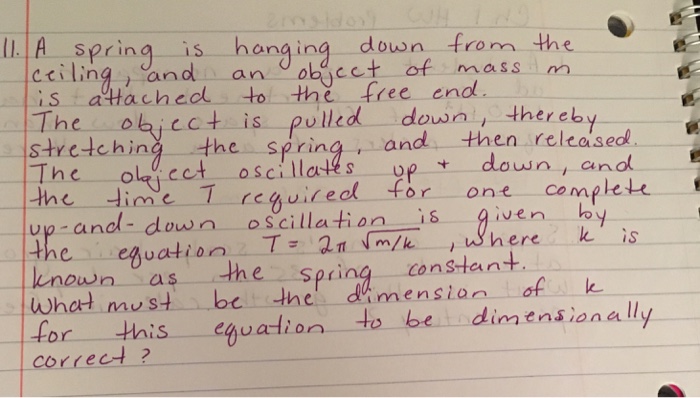 11. A spring is hanging down from the
ceiling, and an object of mass m
is attached to the free end.
The object is pulled down, thereby
stretching the spring, and then released.
The object oscillates up + down, and
the time T required for one complete
up-and-down oscillation is given by
the equation T = 2π √m/k , where k is
known as the spring constant.
What must be the dimension of k
for this equation to be dimensionally
correct?